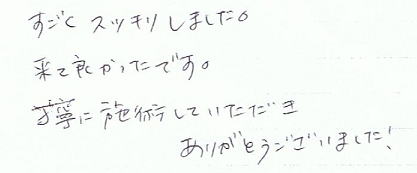 すごく スッキリしました。
来て良かったです。
丁寧に施術していただき
ありがとうございました!